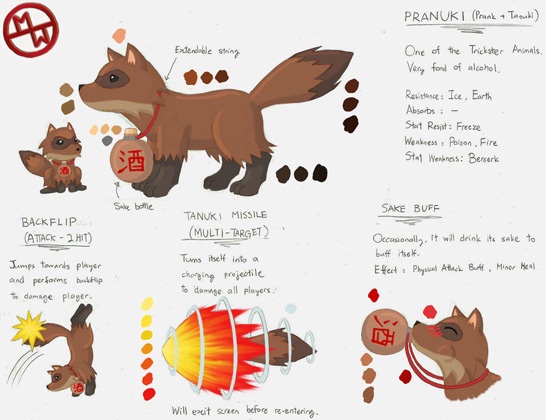 MW
PRANUKI (Prank + Tanuki)
One of the Trickster Animals.
Very fond of alcohol.
Resistance: Ice, Earth
Absorbs: -
Stat Resist: Freeze
Weakness: Poison, Fire
Stat Weakness: Berserk
Extendable string
酒
酒
Sake bottle
BACKFLIP
(ATTACK - 2 HIT)
Jumps towards player
and performs backflip
to damage player.
TANUKI MISSILE
(MULTI-TARGET)
Turns itself into a
charging projectile
to damage all players.
Will exit screen before re-entering.
SAKE BUFF
Occasionally, It will drink its sake to
buff itself.
Effect: Physical Attack Buff, Minor Heal
酒